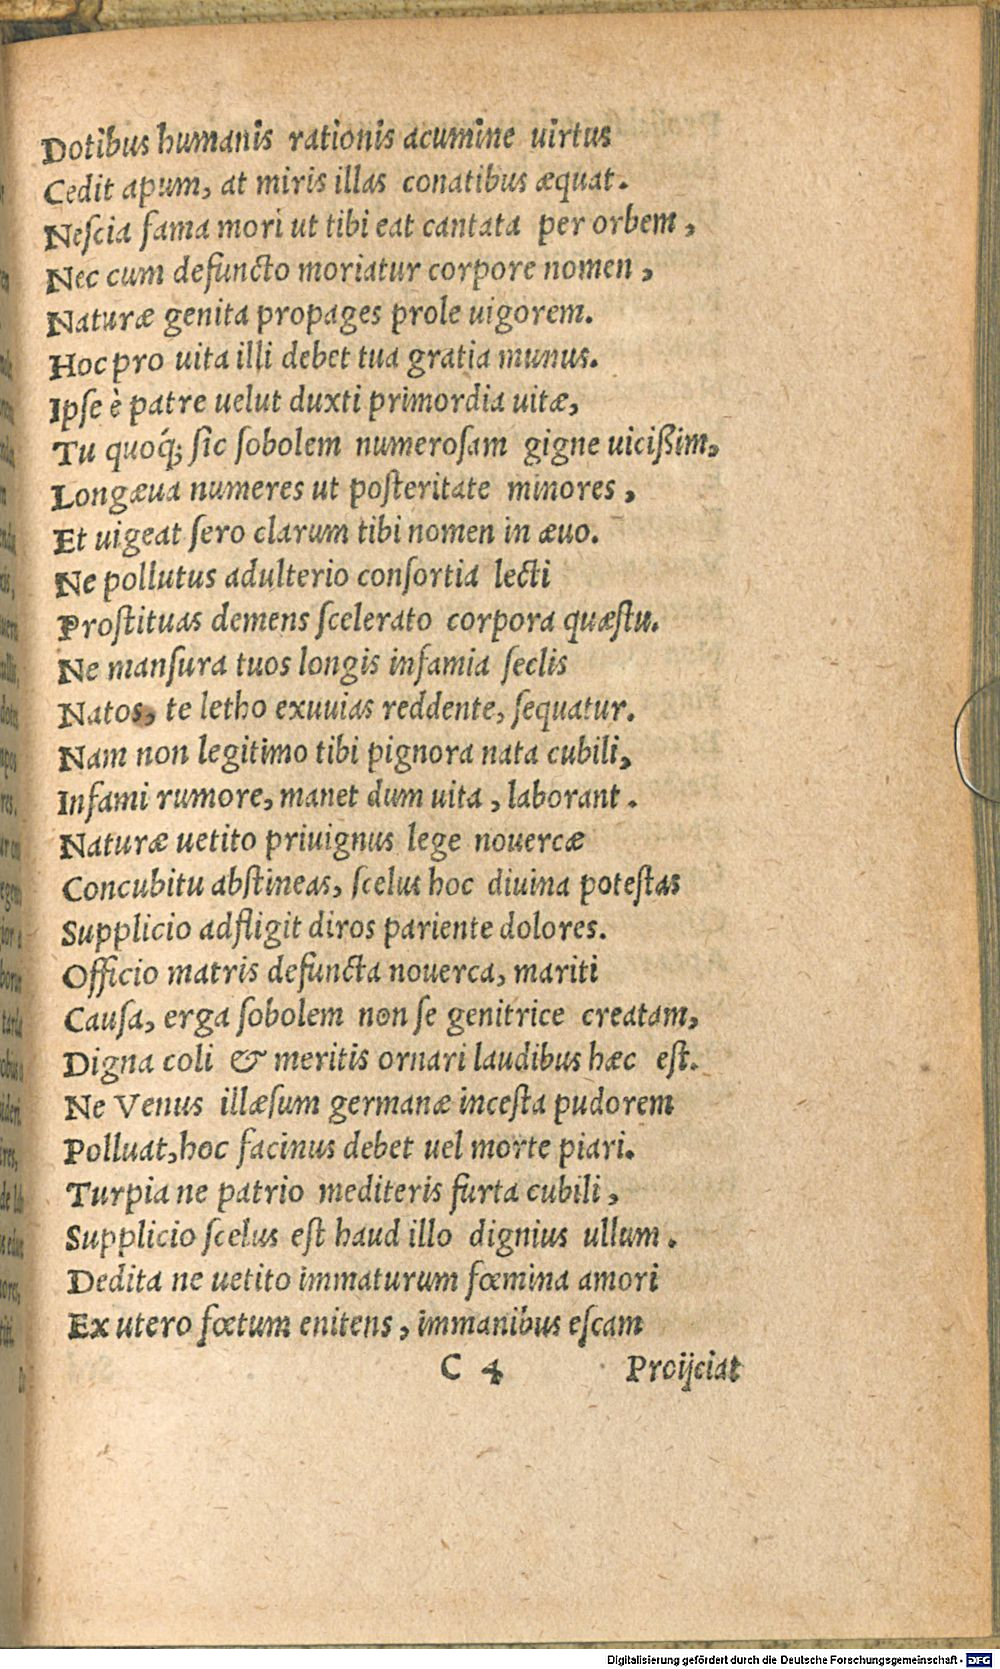 Dotibus humanis rationis acumine uirtus
Cedit apum, at miris illas conatibus æquat.
Neſcia fama mori ut tibi eat cantata per orbem,
Nec cum defuncto moriatur corpore nomen,
Naturæ genita propages prole uigorem.
Hoc pro uita illi debet tua gratia munus.
Ipſe è patre uelut duxti primordia uitæ,
Tu quoq́; ſic ſobolem numeroſam gigne uicißim,
Longæua numeres ut poſteritate minores,
Et uigeat ſero clarum tibi nomen in æuo.
Ne pollutus adulterio conſortia lecti
Proſtituas demens ſcelerato corpora quæſtu.
Ne manſura tuos longis infamia ſeclis
Natos, te letho exuuias reddente, ſequatur.
Nam non legitimo tibi pignora nata cubili,
Infami rumore, manet dum uita, laborant.
Naturæ uetito priuignus lege nouercæ
Concubitu abſtineas, ſcelus hoc diuina poteſtas
Supplicio adfligit diros pariente dolores.
Officio matris defuncta nouerca, mariti
Cauſa, erga ſobolem non ſe genitrice creatam,
Digna coli & meritis ornari laudibus hæc eſt.
Ne Venus illæſum germanæ inceſta pudorem
Polluat, hoc facinus debet uel morte piari.
Turpia ne patrio mediteris furta cubili,
Supplicio ſcelus eſt haud illo dignius ullum.
Dedita ne uetito immaturum fœmina amori
Ex utero fœtum enitens, immanibus eſcam
C 4 Proijciat
Digitalisierung gefördert durch die Deutsche Forschungsgemeinschaft - DFG